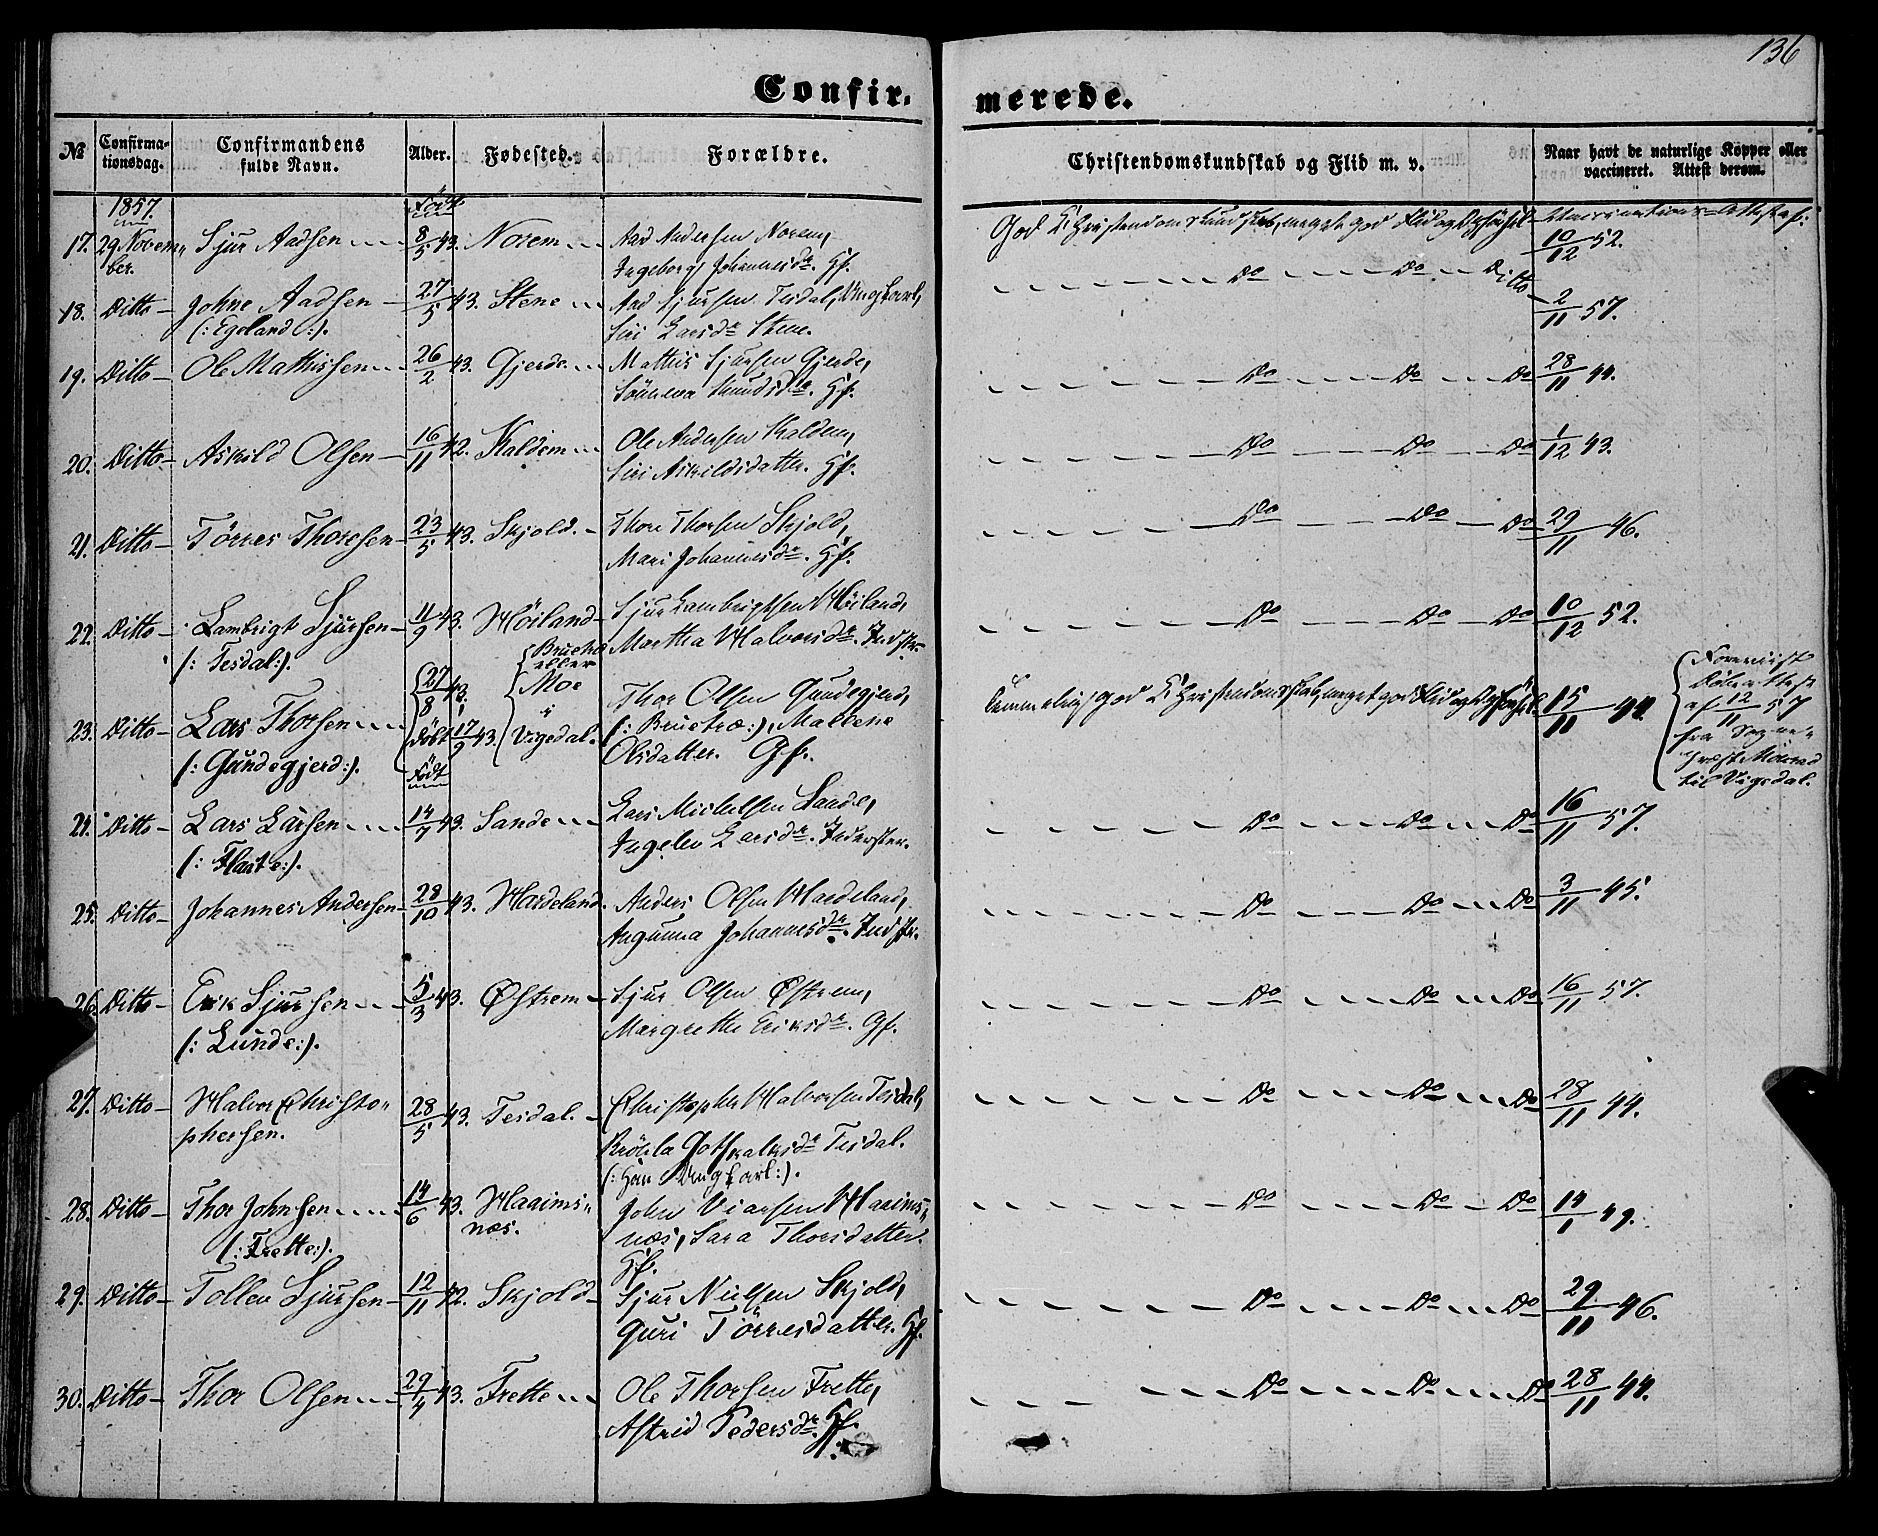 136
Confir-
merede.
№
Confirma-
tionsdag.
Confirmandens
fulde Navn.
Alder.
Fødested.
Forældre.
Christendomskundskab og Flid m. v.
Naar havt de naturlige Kopper eller
vaccineret. Attest derom.
1857.
Født
17. 29 Novem- Sjur Aadsen 8/5 43. Norem Aad Andersen Norem, God Christendomskundskab, meget god Flid og Vaccinations-Attest af:
ber. Ingeborg Johannesdr. Gf. 10/12 52.
18. Ditto Johne Aadsen 27/5 43. Stene Aad Sjursen Tesdal, Ungkarl, Do Do Ditto 2/11 57.
(: Egeland :). Siri Larsdr Stene.
19. Ditto Ole Mathissen 26/2 43. Gjerde Mathis Sjursen Gjerde, Do Do Do 28/11 44.
Gf.
20. Ditto Askild Olsen 16/11 42. Kaldem Ole Andersen Kaldem, Do Do Do 1/12 43.
Siri Askildsdatter. Gf.
21. Ditto Törres Thorsen 23/5 43. Skjold. Thore Thorsen Skjold, Do Do Do 29/11 46.
Mari Johannesdr. Gf.
22. Ditto Lambrigt Sjursen 11/9 43. Höiland Sjur Lambrigtsen Höiland, Do Do Do 10/12 52.
(: Tesdal:). Martha Halvorsdr. Indstr.
23. Ditto Lars Thorsen 27/8 43. Moe Thor Olsen Gundegjerd, Temmelig god Christendomskundskab, meget god Flid og 15/11 44.
eller
Döbt 17/9 43. i Vigedal. Malene
(: Gundegjerd:). Olsdatter. Gf.
Foreviist
Døbeattest
af 12/11 57
fra Sogne-
præst
til Vigedal.
Født
24. Ditto Lars Larsen 14/7 43. Sande Lars Michelsen Sande, Do Do Do 16/11 57.
Ingelev Larsdr. Inderster.
25. Ditto Johannes Andersen 28/10 43. Hardeland. Anders Olsen Hardeland, Do Do Do 3/11 45.
Angunna Johannesdr. Indstr.
26. Ditto Erik Sjursen 5/3 43. Østrem Sjur Olsen Østrem, Do Do Do 16/11 57.
(: Lunde:). Margrethe Eriksdr. Gf.
27. Ditto Halvor Christo- 28/5 43. Tesdal. Christopher Halvorsen Tesdal, Do Do Do 28/11 44.
phersen. Gotskalksdr Tesdal.
(: Han Ungkarl:).
28. Ditto Thor Johnsen 14/6 43. Haaims- John Haaims- Do Do Do 14/1 49.
(: Frette:). næs. næs, Sara Thorsdatter.
Gf.
29. Ditto Tollev Sjursen 12/11 42. Skjold Sjur Nielsen Skjold, Do Do Do 29/11 46.
Guri Törresdatter. Gf.
30. Ditto Thor Olsen 29/4 43. Frette Ole Thorsen Frette, Do Do Do 28/11 44.
Astrid Pedersdr. Gf.